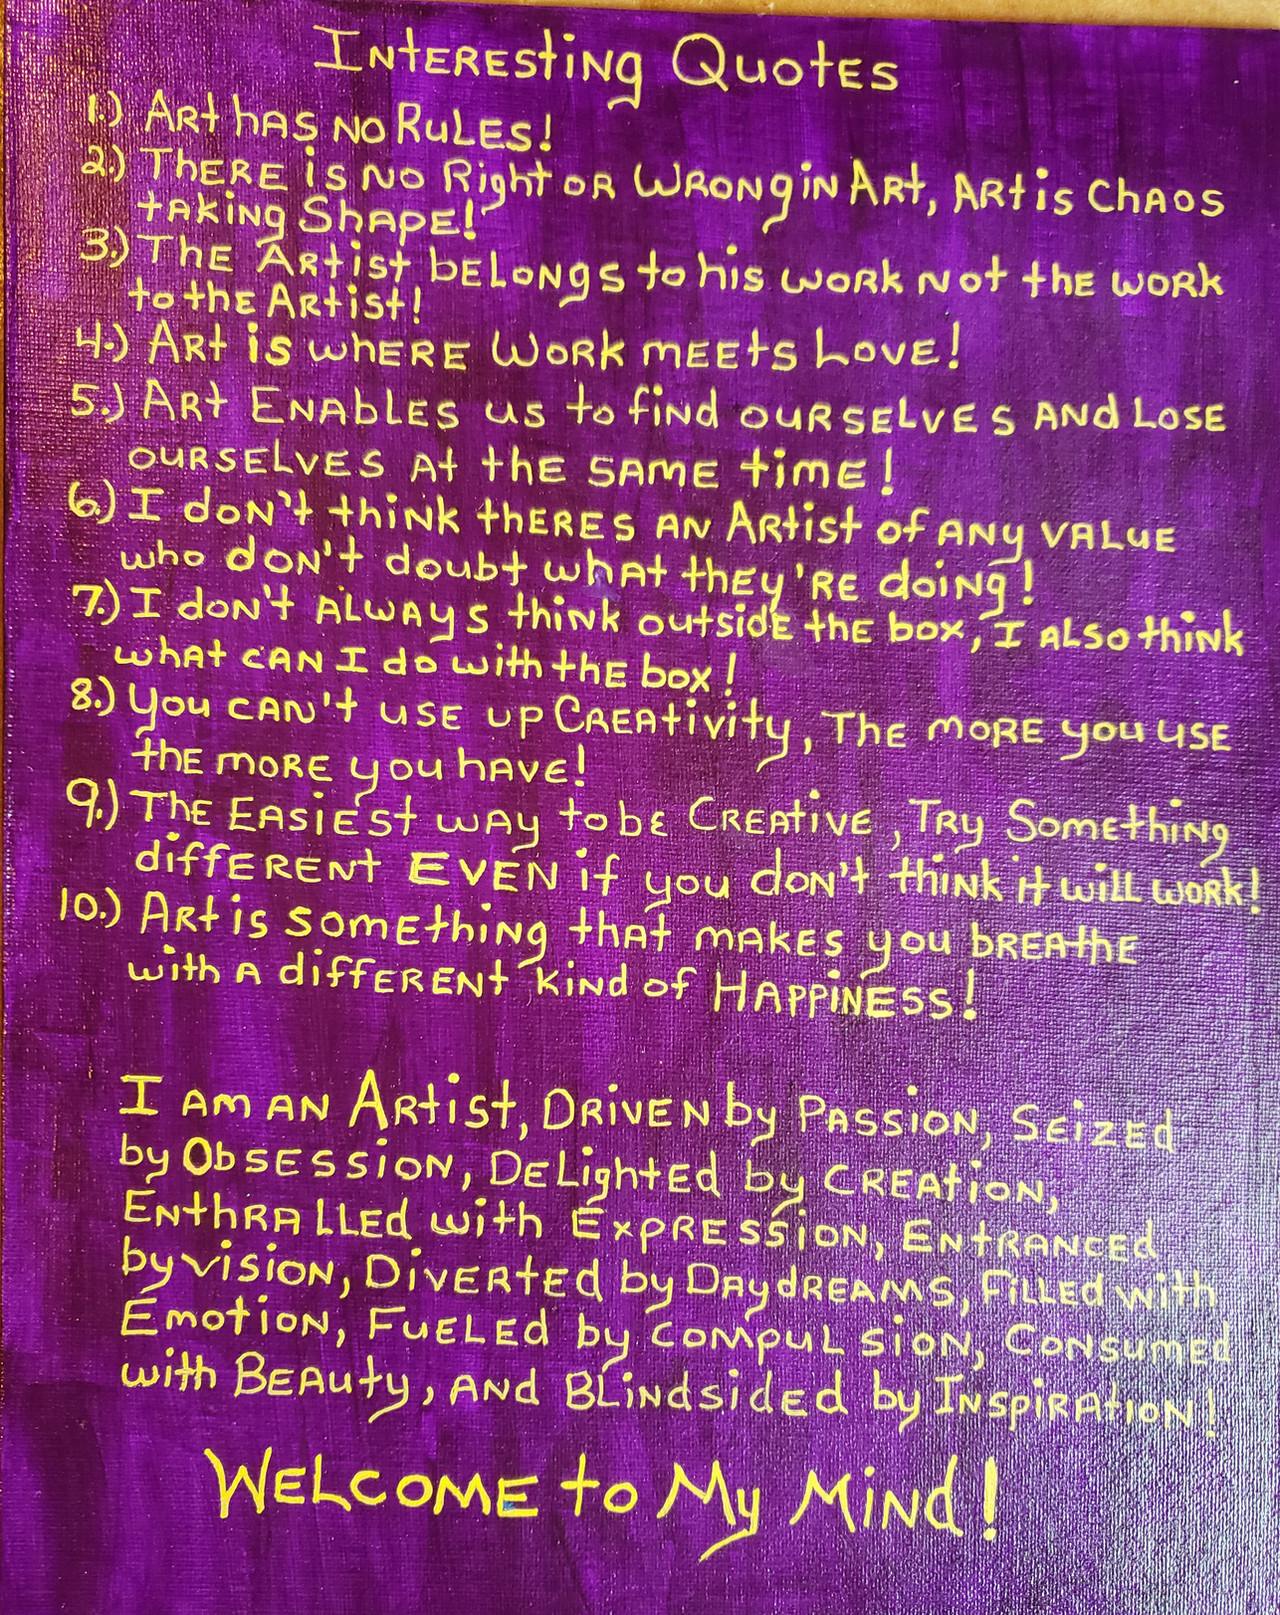 Interesting Quotes
1.) Art has no Rules!
2.) There is no Right or Wrong in Art, Art is Chaos
taking Shape!
3.) The Artist belongs to his work not the work
to the Artist!
4.) Art is where Work meets Love!
5.) Art Enables us to find ourselves and lose
ourselves at the same time!
6.) I don't think theres an Artist of any value
who don't doubt what they're doing!
7.) I don't always think outside the box, I also think
what can I do with the box!
8.) You can't use up Creativity, The more you use
the more you have!
9.) The Easiest way to be Creative, Try Something
different EVEN if you don't think it will work!
10.) Art is something that makes you breathe
with a different kind of Happiness!
I am an Artist, Driven by Passion, Seized
by Obsession, Delighted by Creation,
Enthralled with Expression, Entranced
by vision, Diverted by Daydreams, Filled with
Emotion, Fueled by compulsion, Consumed
with Beauty, and Blindsided by Inspiration!
Welcome to My Mind!